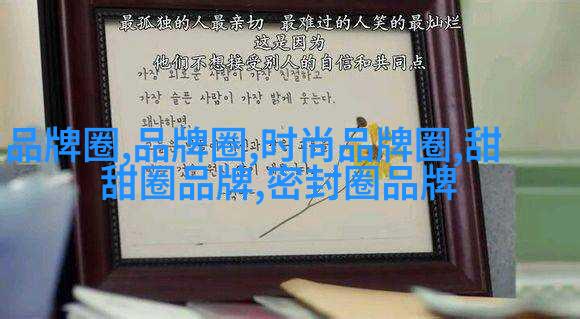 最孤独的人最亲切 最难过的人笑的最灿烂
这是因为
他们不想接受别人的自信和共同点
가장 외로운 사람이 가장 친절하고
가장 슬픈 사람이 가장 밝게 웃는다.
왜냐하면
品牌圈,品牌圈,时尚品牌圈,甜
甜圈品牌,密封圈品牌